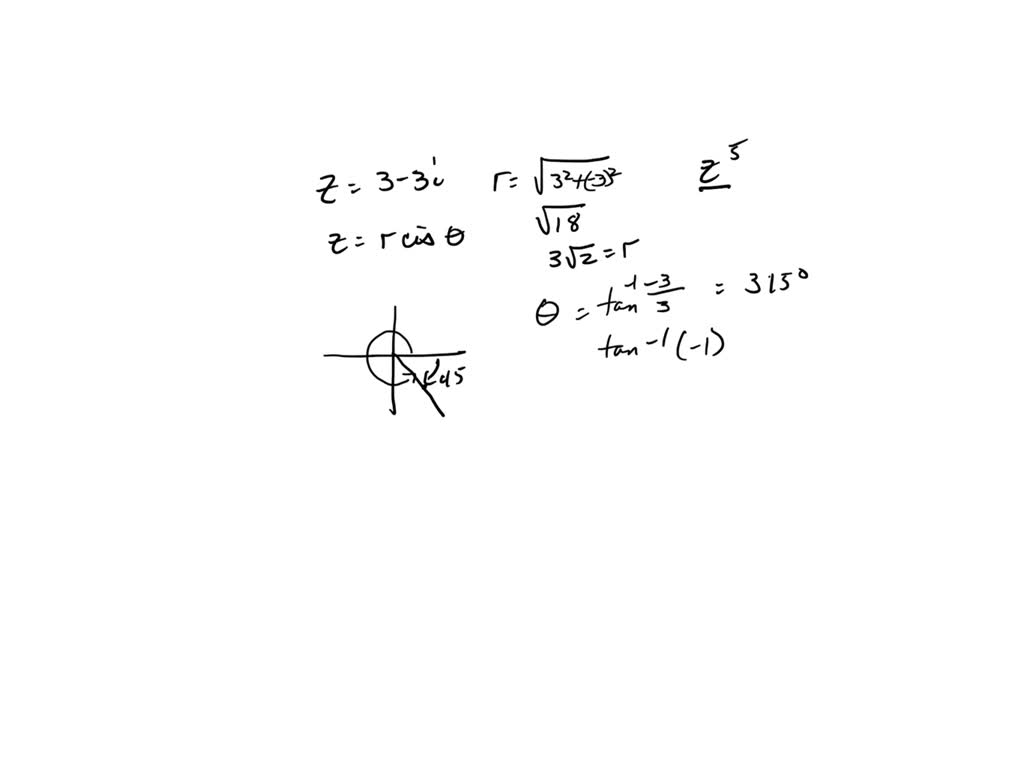 z = 3-3i
r = √3²+(-3)²
z⁵
z = r cis θ
√18
3√2 = r
θ = tan⁻¹ -3/3 = 315°
tan⁻¹(-1)
45